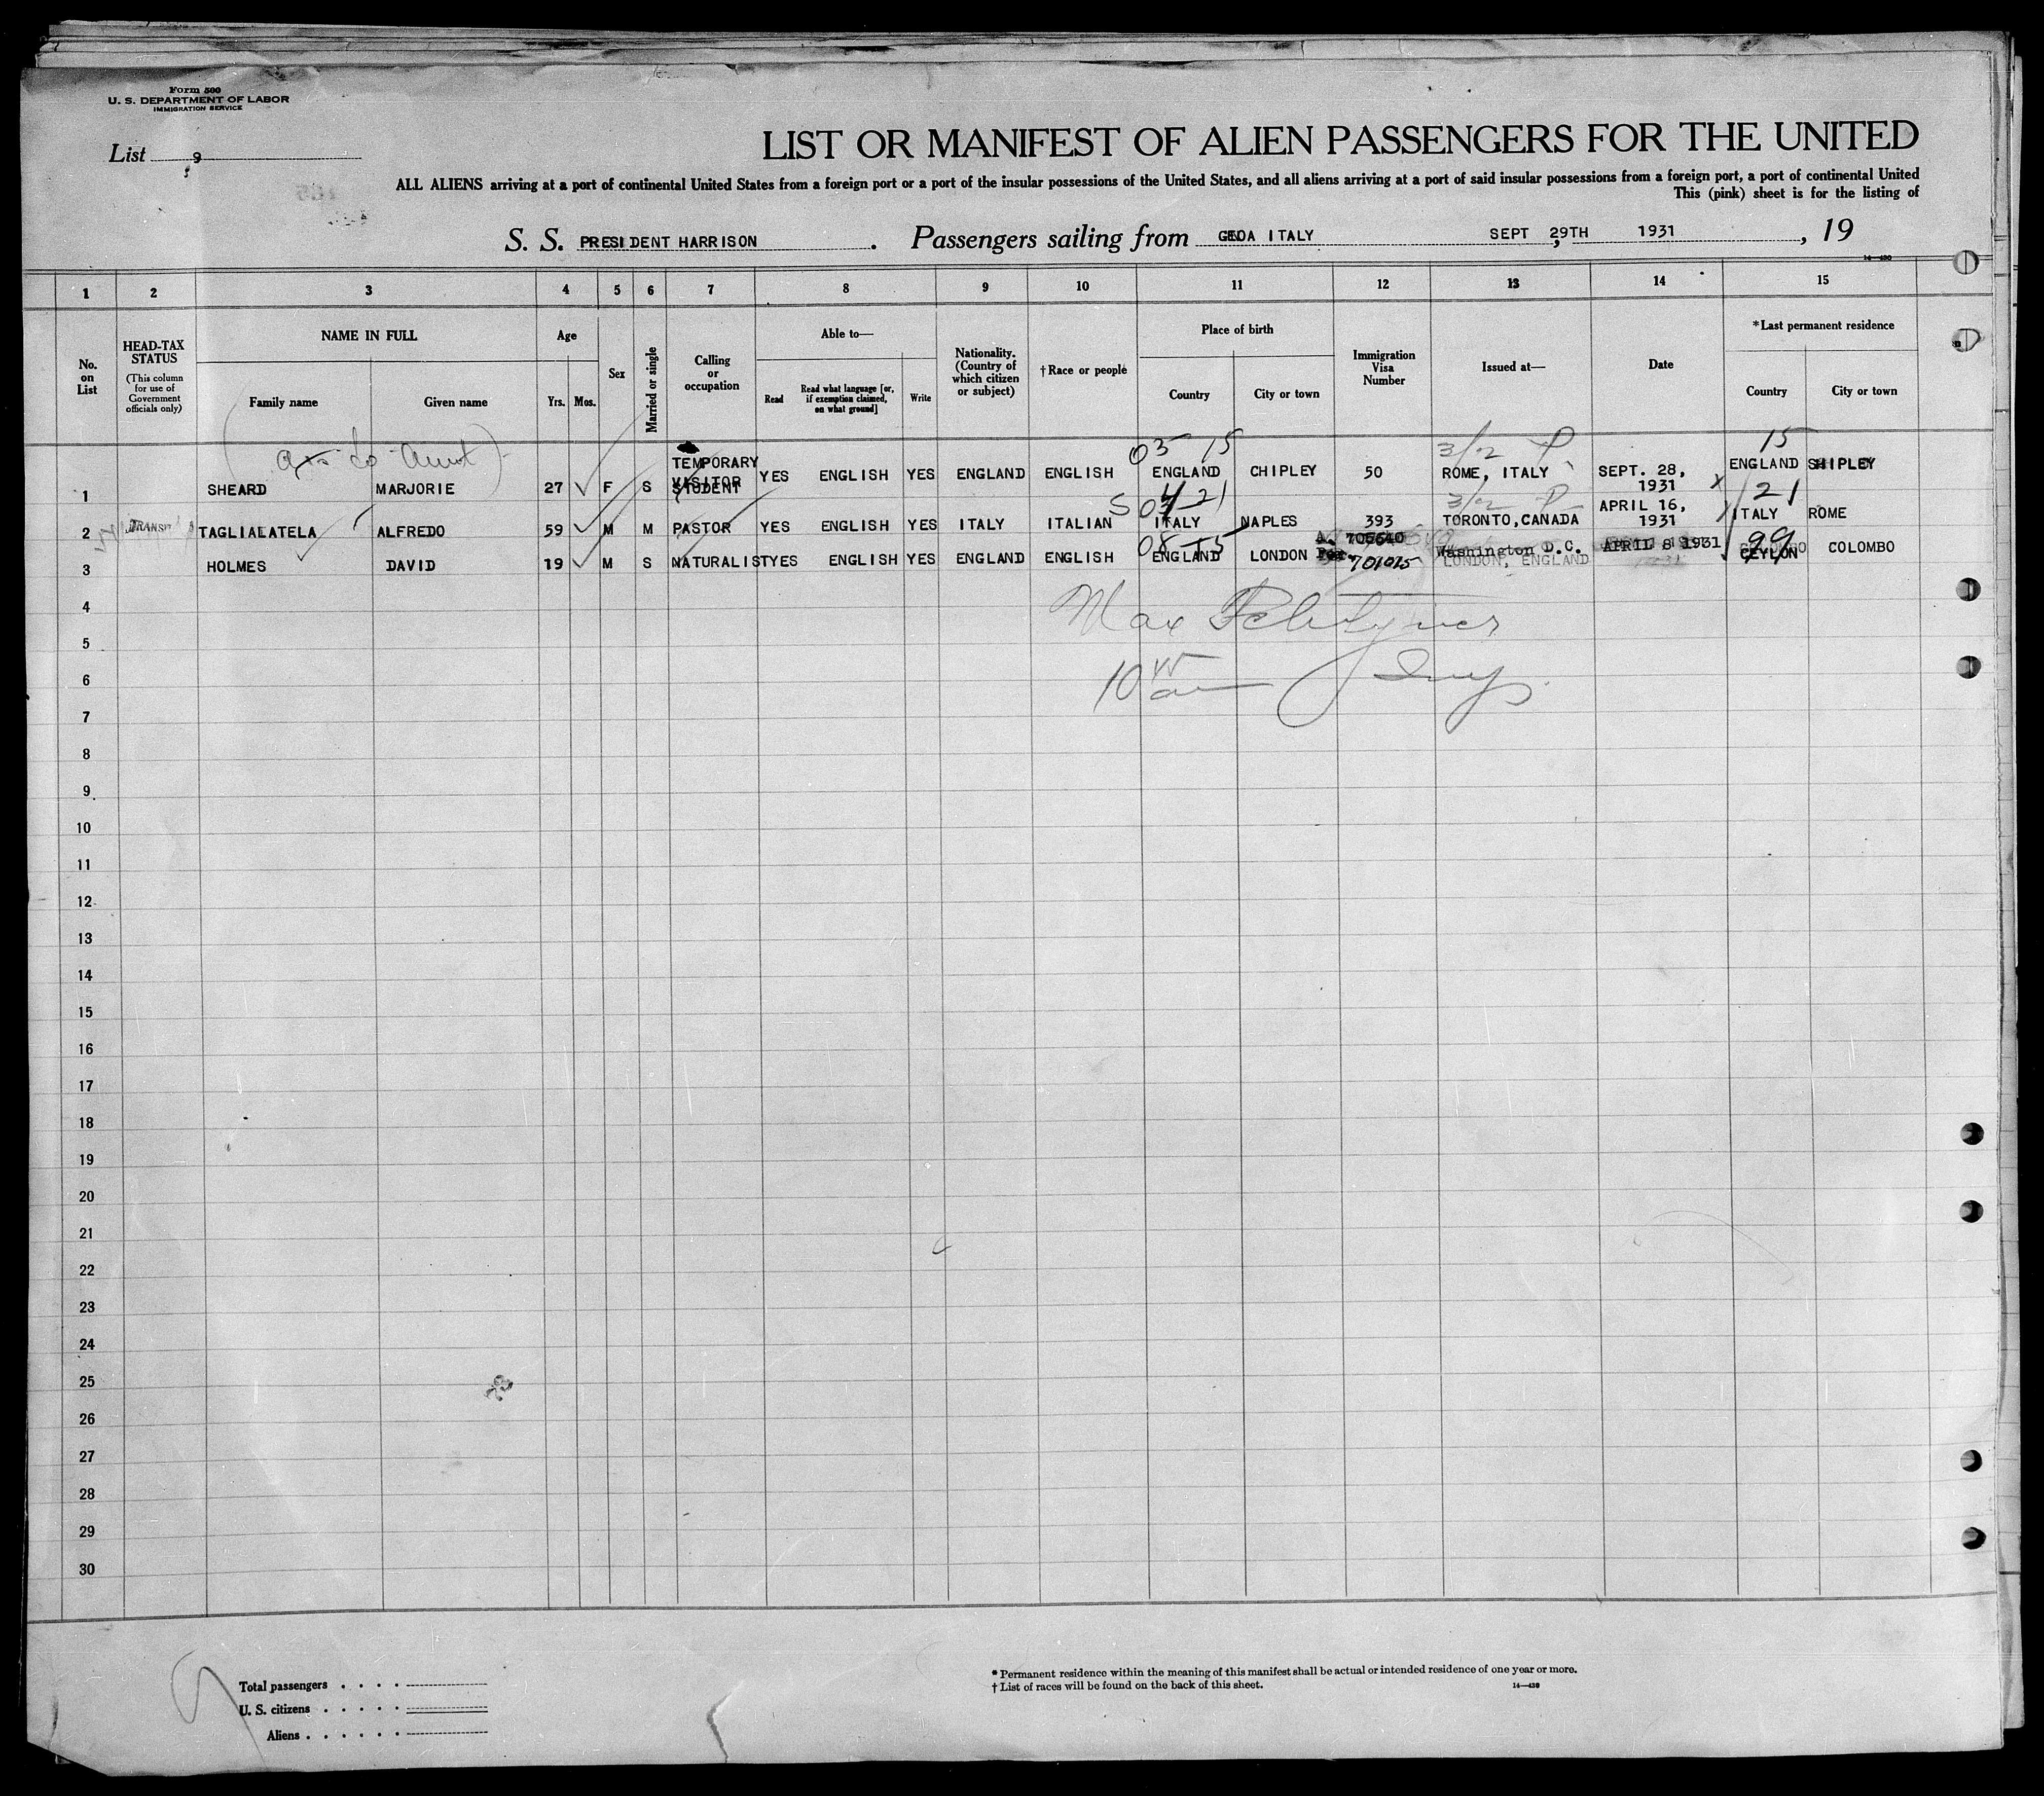 Form 500
U. S. DEPARTMENT OF LABOR
IMMIGRATION SERVICE
List 9
LIST OR MANIFEST OF ALIEN PASSENGERS FOR THE UNITED
ALL ALIENS arriving at a port of continental United States from a foreign port or a port of the insular possessions of the United States, and all aliens arriving at a port of said insular possessions from a foreign port, a port of continental United
This (pink) sheet is for the listing of
S. S. PRESIDENT HARRISON. Passengers sailing from ITALY SEPT 29TH 1931, 19
14—430
1 2 3 4 5 6 7 8 9 10 11 12 13 14 15
No. on List
HEAD-TAX STATUS
(This column for use of Government officials only)
NAME IN FULL
Family name
Given name
Age
Yrs. Mos.
Sex
Married or single
Calling or occupation
Able to—
Read
Read what language [or, if exemption claimed, on what ground]
Write
Nationality. (Country of which citizen or subject)
†Race or people
Place of birth
Country
City or town
Immigration Visa Number
Issued at—
Date
*Last permanent residence
Country
City or town
03 15 3/2 P 15
1 SHEARD MARJORIE 27 F S TEMPORARY VISITOR STUDENT YES ENGLISH YES ENGLAND ENGLISH ENGLAND CHIPLEY 50 ROME, ITALY SEPT. 28, 1931 ENGLAND SHIPLEY
S 04 21 3/2 P 21
2 TRANSIT TAGLIALATELA ALFREDO 59 M M PASTOR YES ENGLISH YES ITALY ITALIAN ITALY NAPLES 393 TORONTO,CANADA APRIL 16, 1931 ITALY ROME
08 15 99
3 HOLMES DAVID 19 M S NATURALIST YES ENGLISH YES ENGLAND ENGLISH ENGLAND LONDON 701025 Washington D.C. LONDON, ENGLAND APRIL 8 1931 CEYLON COLOMBO
4 Max
5
6 10 am Insp.
7
8
9
10
11
12
13
14
15
16
17
18
19
20
21
22
23
24
25
26
27
28
29
30
Total passengers
U. S. citizens
Aliens
* Permanent residence within the meaning of this manifest shall be actual or intended residence of one year or more.
† List of races will be found on the back of this sheet.
14—430